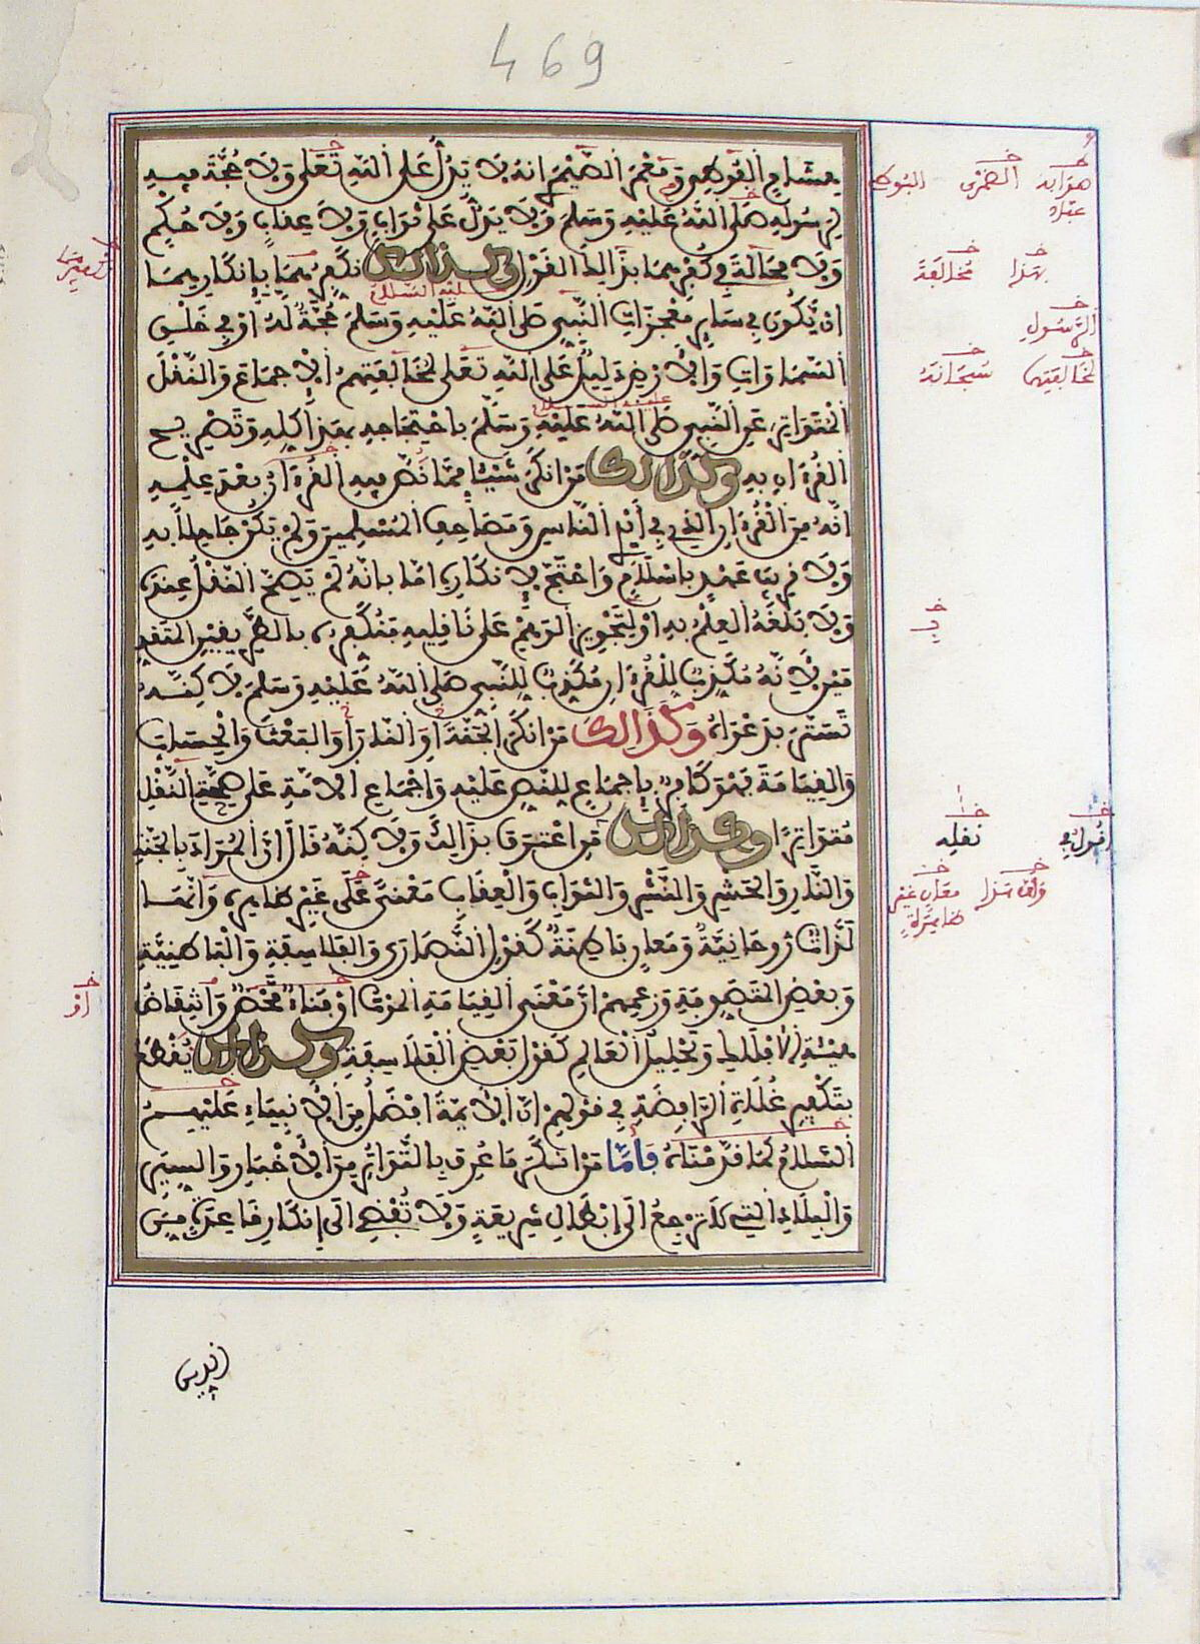 469
هشام الفوطي ومعمر الضيمري انه لا يدل على الله تعلى ولا حجة فيه
لرسوله صلى الله عليه وسلم ولا يدل على ثواب ولا عقاب ولا حكم
ولا محالة في كفرهما بذالك القول وكذالك نكفرهما بانكارهما
ان يكون في ساير معجزات النبي صلى الله عليه وسلم حجة له او في خلق
السماوات والارض دليل على الله تعلى لمخالفتهم الاجماع والنقل
المتواتر عن النبي صلى الله عليه وسلم باحتجاجه بهذا كله وتصريح
القرءان به وكذالك من انكر شيئا مما نص فيه القرءان بعد علمه
انه من القرءان الذي في أيدي الناس ومصاحف المسلمين ولم يكن جاهلا به
ولا قريب عهد بالاسلام واحتج لانكاره اما بانه لم يصح النقل عنده
ولا بلغه العلم به او لتجويز الوهم على ناقليه فنكفره بالطريقين المتقد
مين لانه مكذب للقرءان مكذب للنبي صلى الله عليه وسلم لاكنه
تستر بدعواه وكذالك من انكر الجنة او النار او البعث او الحساب
والقيامة فهو كافر باجماع للنص عليه واجماع الامة على صحة النقل
متواترا وكذالك من اعترف بذالك ولاكنه قال ان المراد بالجنة
والنار والحشر والنشر والثواب والعقاب معنى على غير ظاهره وانما
لذات روحانية ومعان باطنة كقول النصارى والفلاسفة والباطنية
وبعض المتصوفة وزعمهم ان معنى القيامة الموت او فناء محض وانتقاض
هيئة الافلاك وتحليل العالم كقول بعض الفلاسفة وكذالك يقطع
بتكفير غلاة الرافضة في قولهم ان الايمة افضل من الانبياء عليهم
السلام كما قدمناه فاما من انكر ما عرف بالتواتر من الاخبار والسير
والبلاد التي لا ترجع الى ابطال شريعة ولا تفضي الى انكار قاعدة من
بهذا مخالفة
الرسول
لمخالفتهم سبحانه
نقله
وان هذا معان غير
ظاهرة
او
الدين